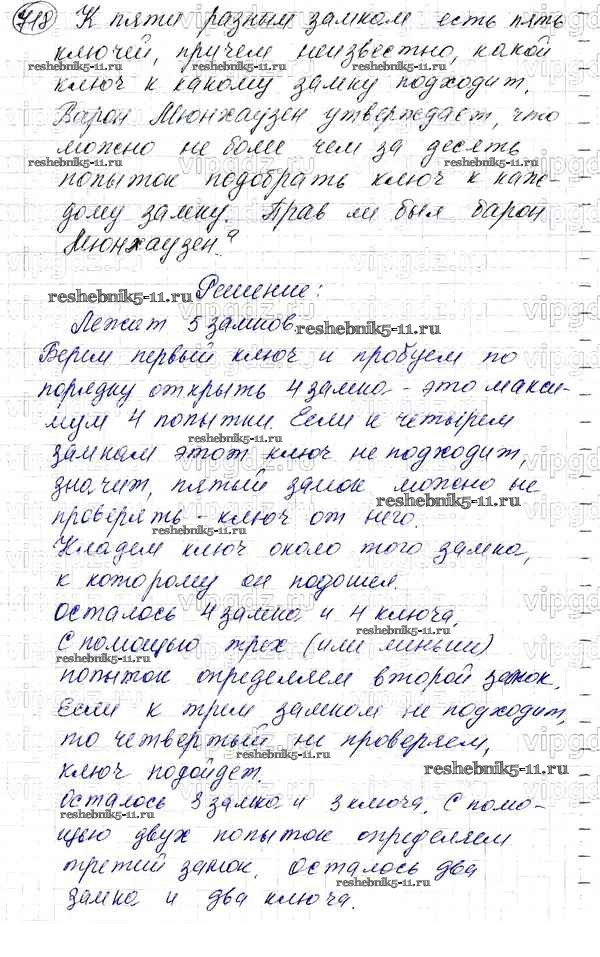 718 К пяти разным замкам есть пять
ключей, причем неизвестно, какой
ключ к какому замку подходит.
Барон Мюнхаузен утверждает, что
можно не более чем за десять
попыток подобрать ключ к каж-
дому замку. Прав ли был барон
Мюнхаузен?
Решение:
Лежит 5 замков.
Берем первый ключ и пробуем по
порядку открыть 4 замка - это макси-
мум 4 попытки. Если к четырем
замкам этот ключ не подходит,
значит, пятый замок можно не
проверять - ключ от него.
Кладем ключ около того замка,
к которому он подошел.
Осталось 4 замка и 4 ключа.
С помощью трех (или меньше)
попыток определяем второй замок.
Если к трем замкам не подходит,
то четвертый не проверяем,
ключ подойдет.
Осталось 3 замка и 3 ключа. С помо-
щью двух попыток определяем
третий замок. Осталось два
замка и два ключа.
reshebnik5-11.ru
vipgdz.ru